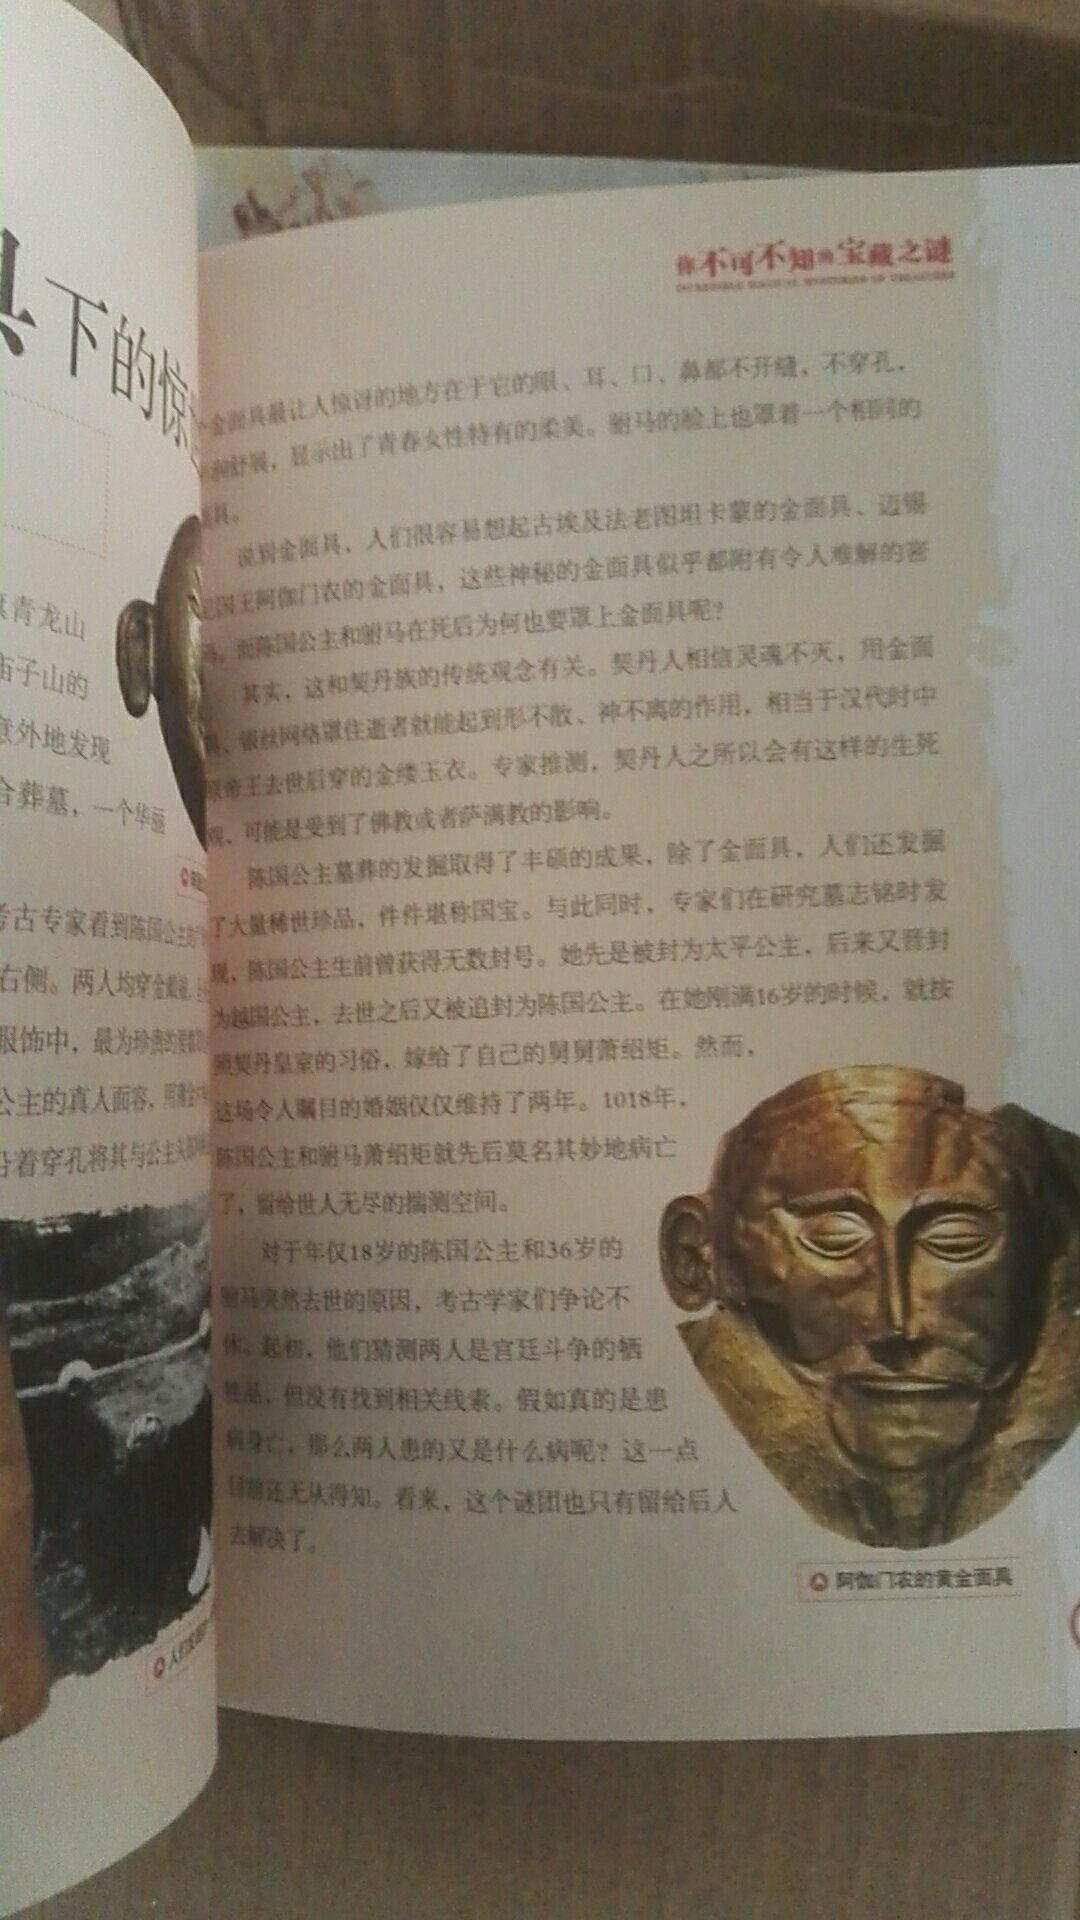 具下的惊
青龙山
庙子山的
意外地发现
合葬墓，一个华丽
考古专家看到陈国公主
右侧。两人均穿金戴银
服饰中，最为珍贵的要数
公主的真人面容，用薄金
沿着穿孔将其与公主头部
你不可不知的宝藏之谜
INCREDIBLE MAGICAL MYSTERIES OF TREASURES
金面具最让人惊讶的地方在于它的眼、耳、口、鼻都不开缝，不穿孔，
润舒展，显示出了青春女性特有的柔美。驸马的脸上也罩着一个相同的
面具。
说到金面具，人们很容易想起古埃及法老图坦卡蒙的金面具、迈锡
尼国王阿伽门农的金面具，这些神秘的金面具似乎都附有令人难解的密
码。而陈国公主和驸马在死后为何也要罩上金面具呢？
其实，这和契丹族的传统观念有关。契丹人相信灵魂不灭，用金面
具、银丝网络罩住逝者就能起到形不散、神不离的作用，相当于汉代时中
原帝王去世后穿的金缕玉衣。专家推测，契丹人之所以会有这样的生死
观，可能是受到了佛教或者萨满教的影响。
陈国公主墓葬的发掘取得了丰硕的成果，除了金面具，人们还发掘
了大量稀世珍品，件件堪称国宝。与此同时，专家们在研究墓志铭时发
现，陈国公主生前曾获得无数封号。她先是被封为太平公主，后来又晋封
为越国公主，去世之后又被追封为陈国公主。在她刚满16岁的时候，就按
照契丹皇室的习俗，嫁给了自己的舅舅萧绍矩。然而，
这场令人瞩目的婚姻仅仅维持了两年。1018年，
陈国公主和驸马萧绍矩就先后莫名其妙地病亡
了，留给世人无尽的揣测空间。
对于年仅18岁的陈国公主和36岁的
驸马突然去世的原因，考古学家们争论不
休。起初，他们猜测两人是宫廷斗争的牺
牲品，但没有找到相关线索。假如真的是患
病身亡，那么两人患的又是什么病呢？这一点
目前还无从得知。看来，这个谜团也只有留给后人
去解决了。
阿伽门农的黄金面具